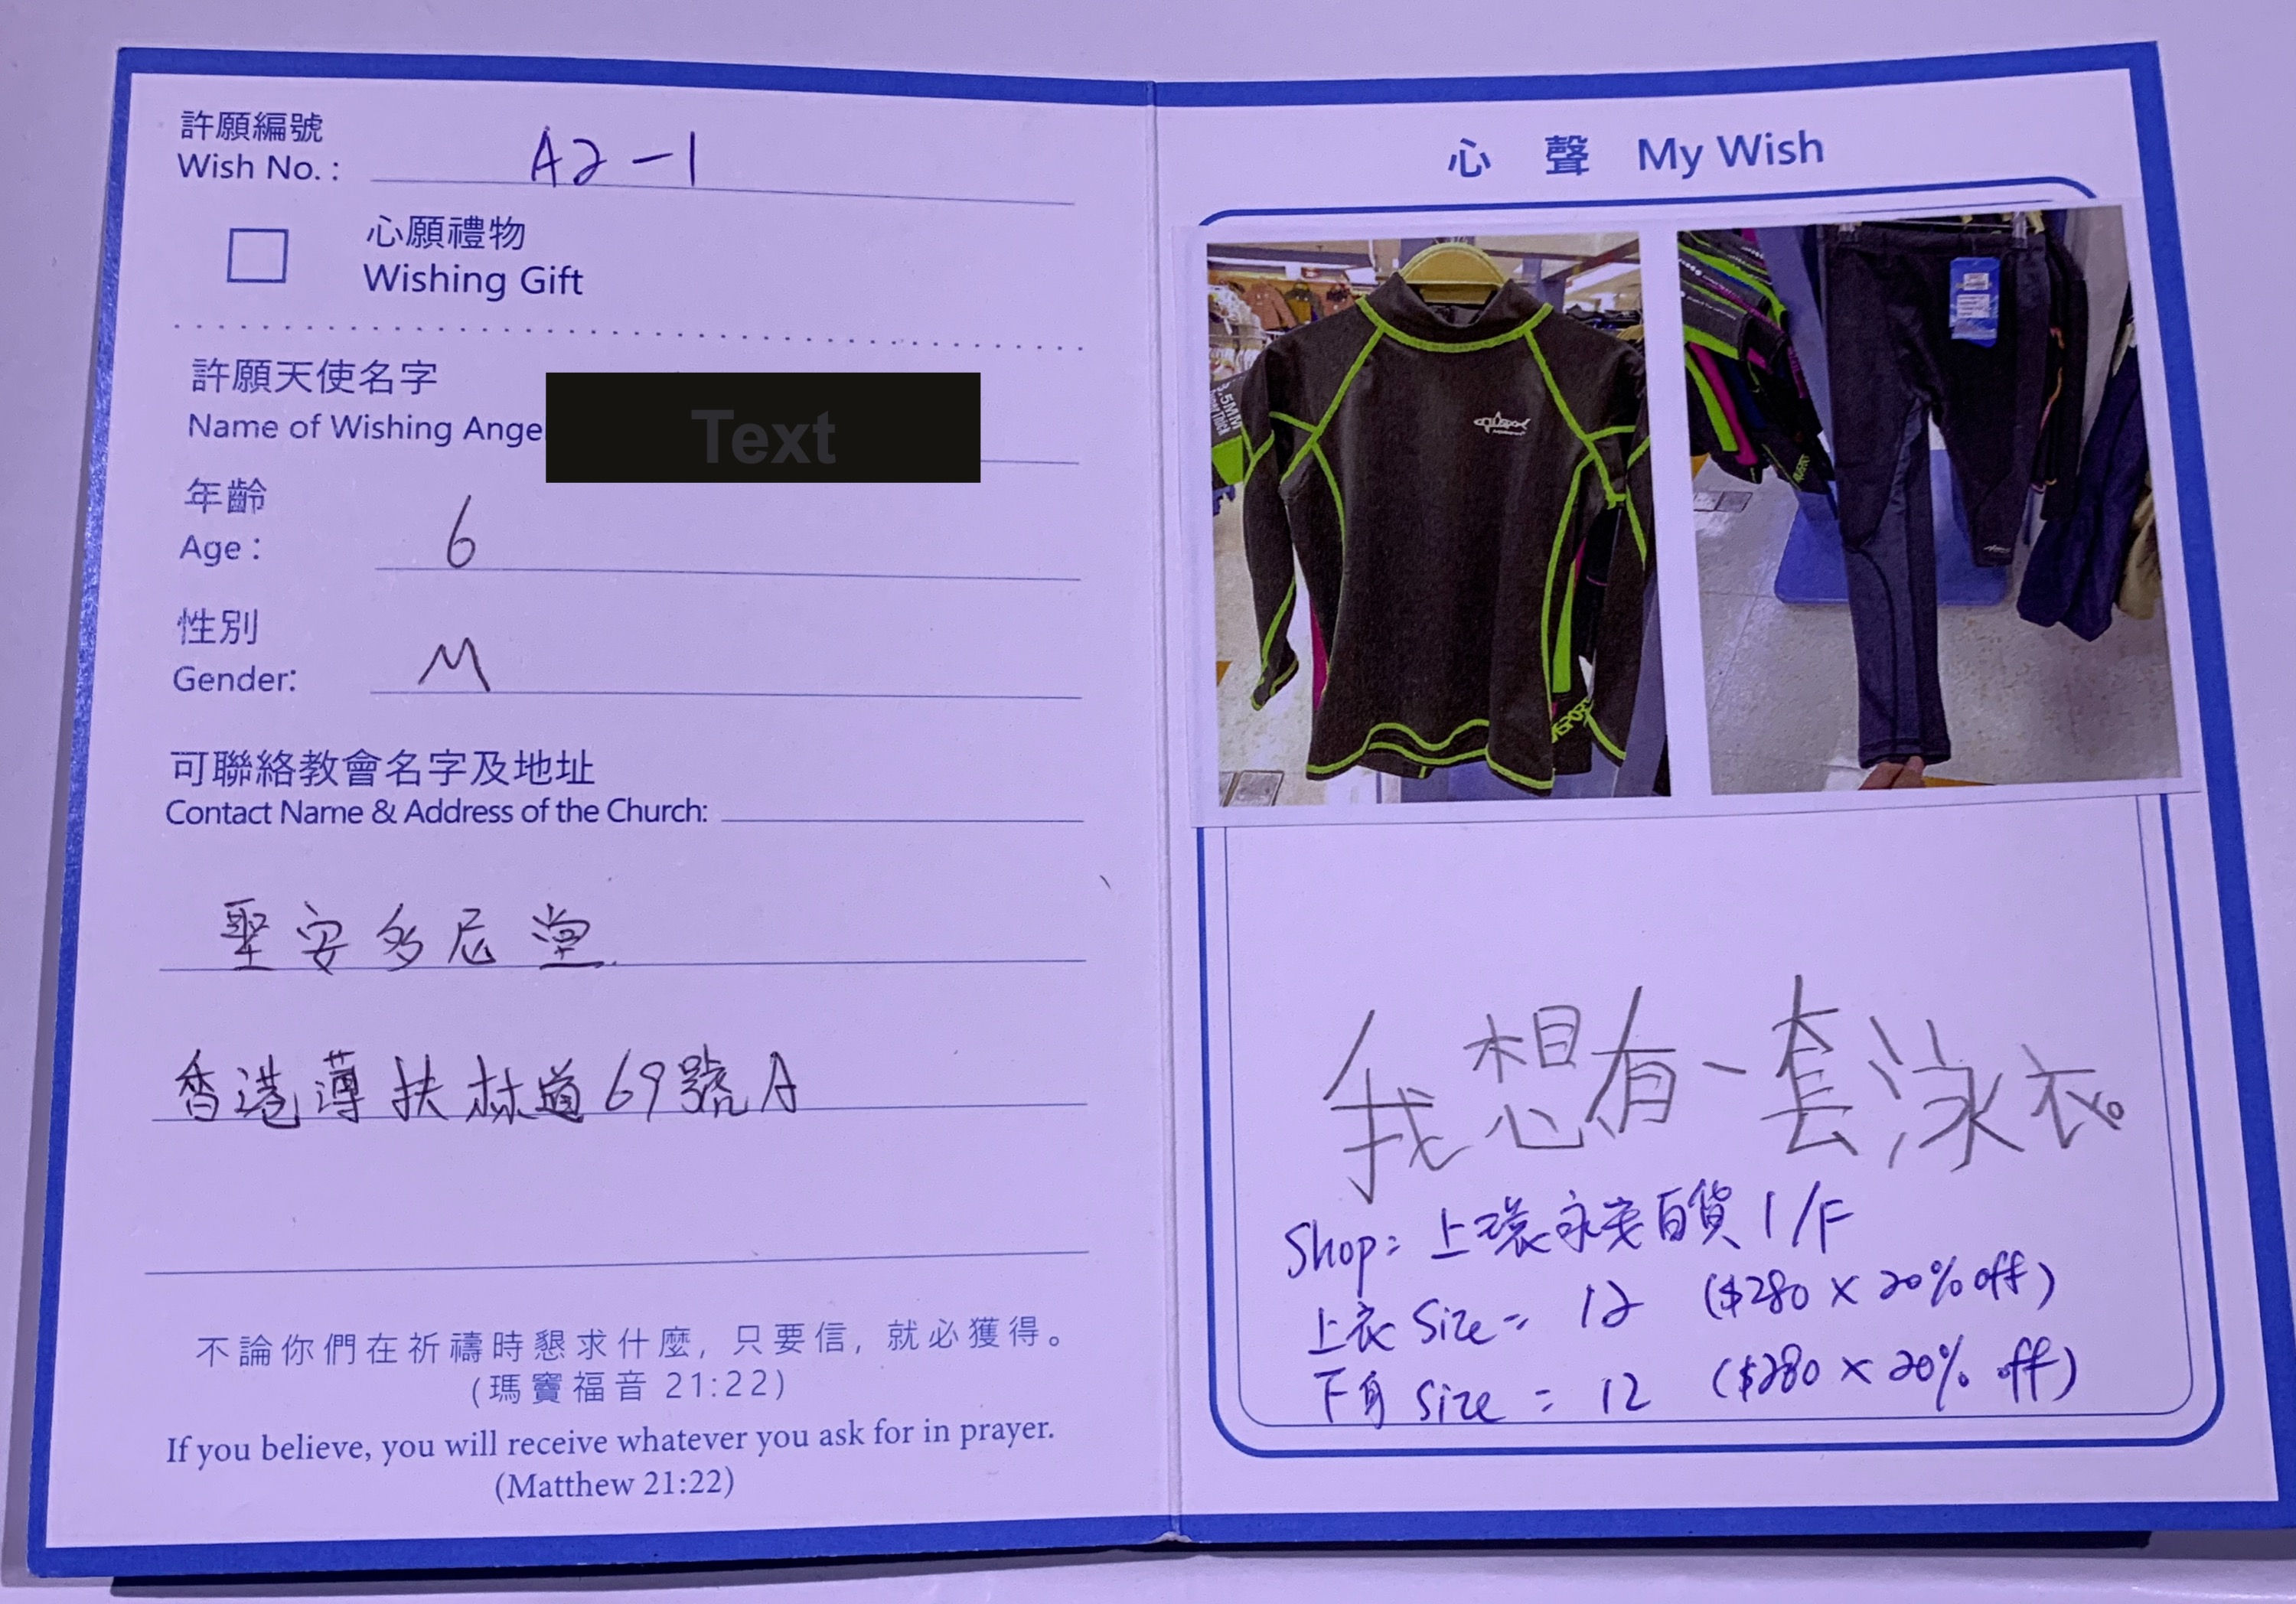 許願編號
Wish No. : A2-1
心願禮物
Wishing Gift
許願天使名字
Name of Wishing Ange
Text
年齡
Age : 6
性別
Gender: M
可聯絡教會名字及地址
Contact Name & Address of the Church:
聖安多尼堂
香港薄扶林道69號A
不論你們在祈禱時懇求什麼，只要信，就必獲得。
(瑪竇福音 21:22)
If you believe, you will receive whatever you ask for in prayer.
(Matthew 21:22)
心聲 My Wish
我想有一套泳衣。
Shop: 上環永安百貨 1/F
上衣 Size = 12 ($280 x 20% off)
下身 Size = 12 ($280 x 20% off)